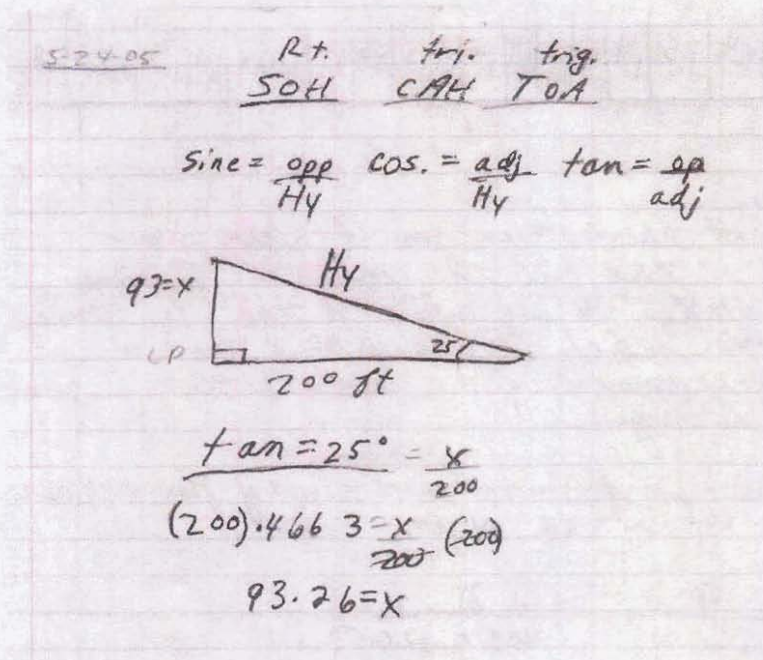 5-24-05 Rt. tri. trig.
SOH CAH TOA
Sine = opp/Hy cos. = adj/Hy tan = op/adj
Hy
93=x
25
200 ft
tan = 25° = x/200
(200) .4663 = x/200 (200)
93.26 = x